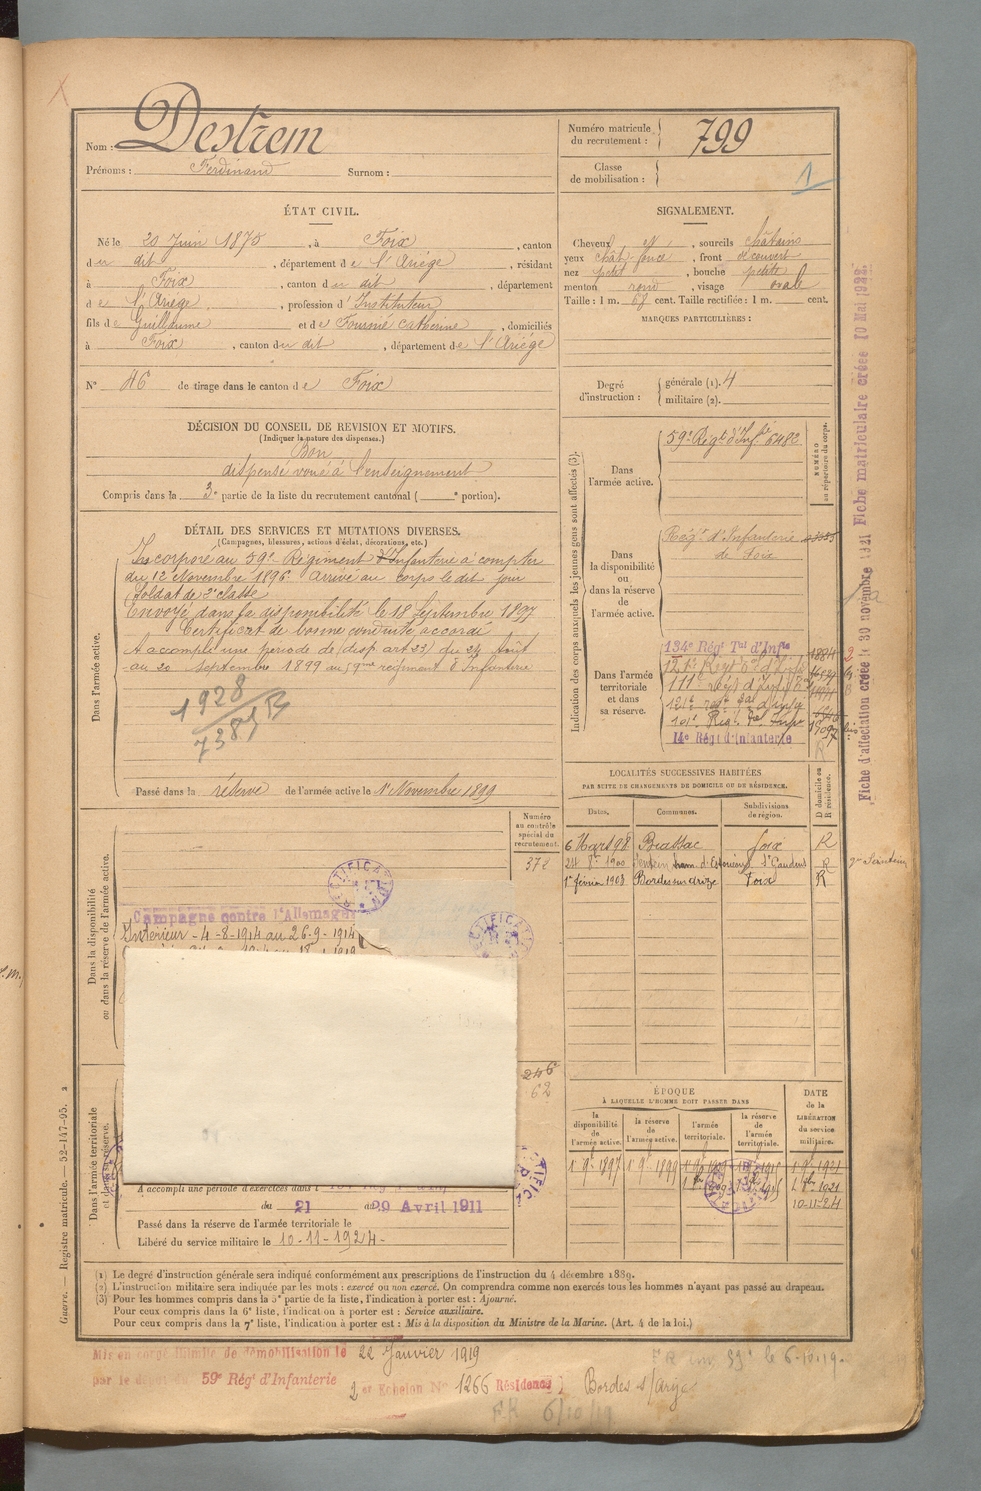 Nom : Destrem
Prénoms : Ferdinand Surnom :
Numéro matricule du recrutement : 799
Classe de mobilisation :
1
ÉTAT CIVIL.
Né le 20 Juin 1875, à Foix, canton
du dit, département de l'Ariège, résidant
à Foix, canton du dit, département
de l'Ariège, profession d'Instituteur
fils de Guillaume et de Fournié Catherine, domiciliés
à Foix, canton du dit, département de l'Ariège
N° 46 de tirage dans le canton de Foix
SIGNALEMENT.
Cheveux et, sourcils châtains
yeux chât. foncé, front découvert
nez petit, bouche petite
menton rond, visage ovale
Taille : 1 m. 68 cent. Taille rectifiée : 1 m. cent.
MARQUES PARTICULIÈRES :
Degré d'instruction : générale (1). 4
militaire (2).
DÉCISION DU CONSEIL DE REVISION ET MOTIFS.
(Indiquer la nature des dispenses.)
Bon
dispensé voué à l'enseignement
Compris dans la 3e partie de la liste du recrutement cantonal ( e portion).
DÉTAIL DES SERVICES ET MUTATIONS DIVERSES.
(Campagnes, blessures, actions d'éclat, décorations, etc.)
Dans l'armée active.
Incorporé au 59e Régiment d'Infanterie à compter
du 12 Novembre 1896. Arrivé au corps le dit jour
Soldat de 2e classe
Envoyé dans la disponibilité le 18 Septembre 1897
Certificat de bonne conduite accordé
A accompli une période de (disp. art 23) du 24 Août
au 20 Septembre 1899 au 59me régiment d'Infanterie
1928
7381 B
Passé dans la réserve de l'armée active le 1er Novembre 1899
Indication des corps auxquels les jeunes gens sont affectés (3).
NUMÉRO au répertoire du corps.
Dans l'armée active.
59e Régt d'Inf.rie 6482
Dans la disponibilité ou dans la réserve de l'armée active.
Rég.t d'Infanterie
de Foix
Dans l'armée territoriale et dans sa réserve.
134e Rég.t T.al d'Inf.ie 1884
14e Rég.t d'Infanterie
Fiche d'affectation créée le 30 novembre 1921 Fiche matriculaire créée 10 Mai 1922.
LOCALITÉS SUCCESSIVES HABITÉES
PAR SUITE DE CHANGEMENTS DE DOMICILE OU DE RÉSIDENCE.
D domicile ou R résidence.
Dates. Communes. Subdivisions de région.
6 Mars 98 Biassac Foix R
24 8bre 1900 Sentein St Gaudens R
1er février 1903 Bordes sur Arize Foix R
Numéro au contrôle spécial du recrutement.
372
Dans la disponibilité ou dans la réserve de l'armée active.
RECTIFICATION
RECTIFICATION
Campagne contre l'Allemagne
Intérieur - 4-8-1914 au 26-9-1914
Dans l'armée territoriale et dans sa réserve.
246
62
A accompli une période d'exercices dans l
du 21 au 29 Avril 1911
Passé dans la réserve de l'armée territoriale le
Libéré du service militaire le 10-11-1924-
ÉPOQUE
À LAQUELLE L'HOMME DOIT PASSER DANS
la disponibilité de l'armée active.
la réserve de l'armée active.
l'armée territoriale.
la réserve de l'armée territoriale.
DATE de la LIBÉRATION du service militaire.
1er 9bre 1897 1er 9bre 1899
10-11-24
(1) Le degré d'instruction générale sera indiqué conformément aux prescriptions de l'instruction du 4 décembre 1889.
(2) L'instruction militaire sera indiquée par les mots : exercé ou non exercé. On comprendra comme non exercés tous les hommes n'ayant pas passé au drapeau.
(3) Pour les hommes compris dans la 5e partie de la liste, l'indication à porter est : Ajourné.
Pour ceux compris dans la 6e liste, l'indication à porter est : Service auxiliaire.
Pour ceux compris dans la 7e liste, l'indication à porter est : Mis à la disposition du Ministre de la Marine. (Art. 4 de la loi.)
Guerre. — Registre matricule. — 52-147-95. 2
Mis en congé illimité de démobilisation le 22 Janvier 1919
par le dépôt du 59e Rég.t d'Infanterie
2 er Echelon N° 1266 Résidence Bordes s/Arize
6-10-19.
6/10/19